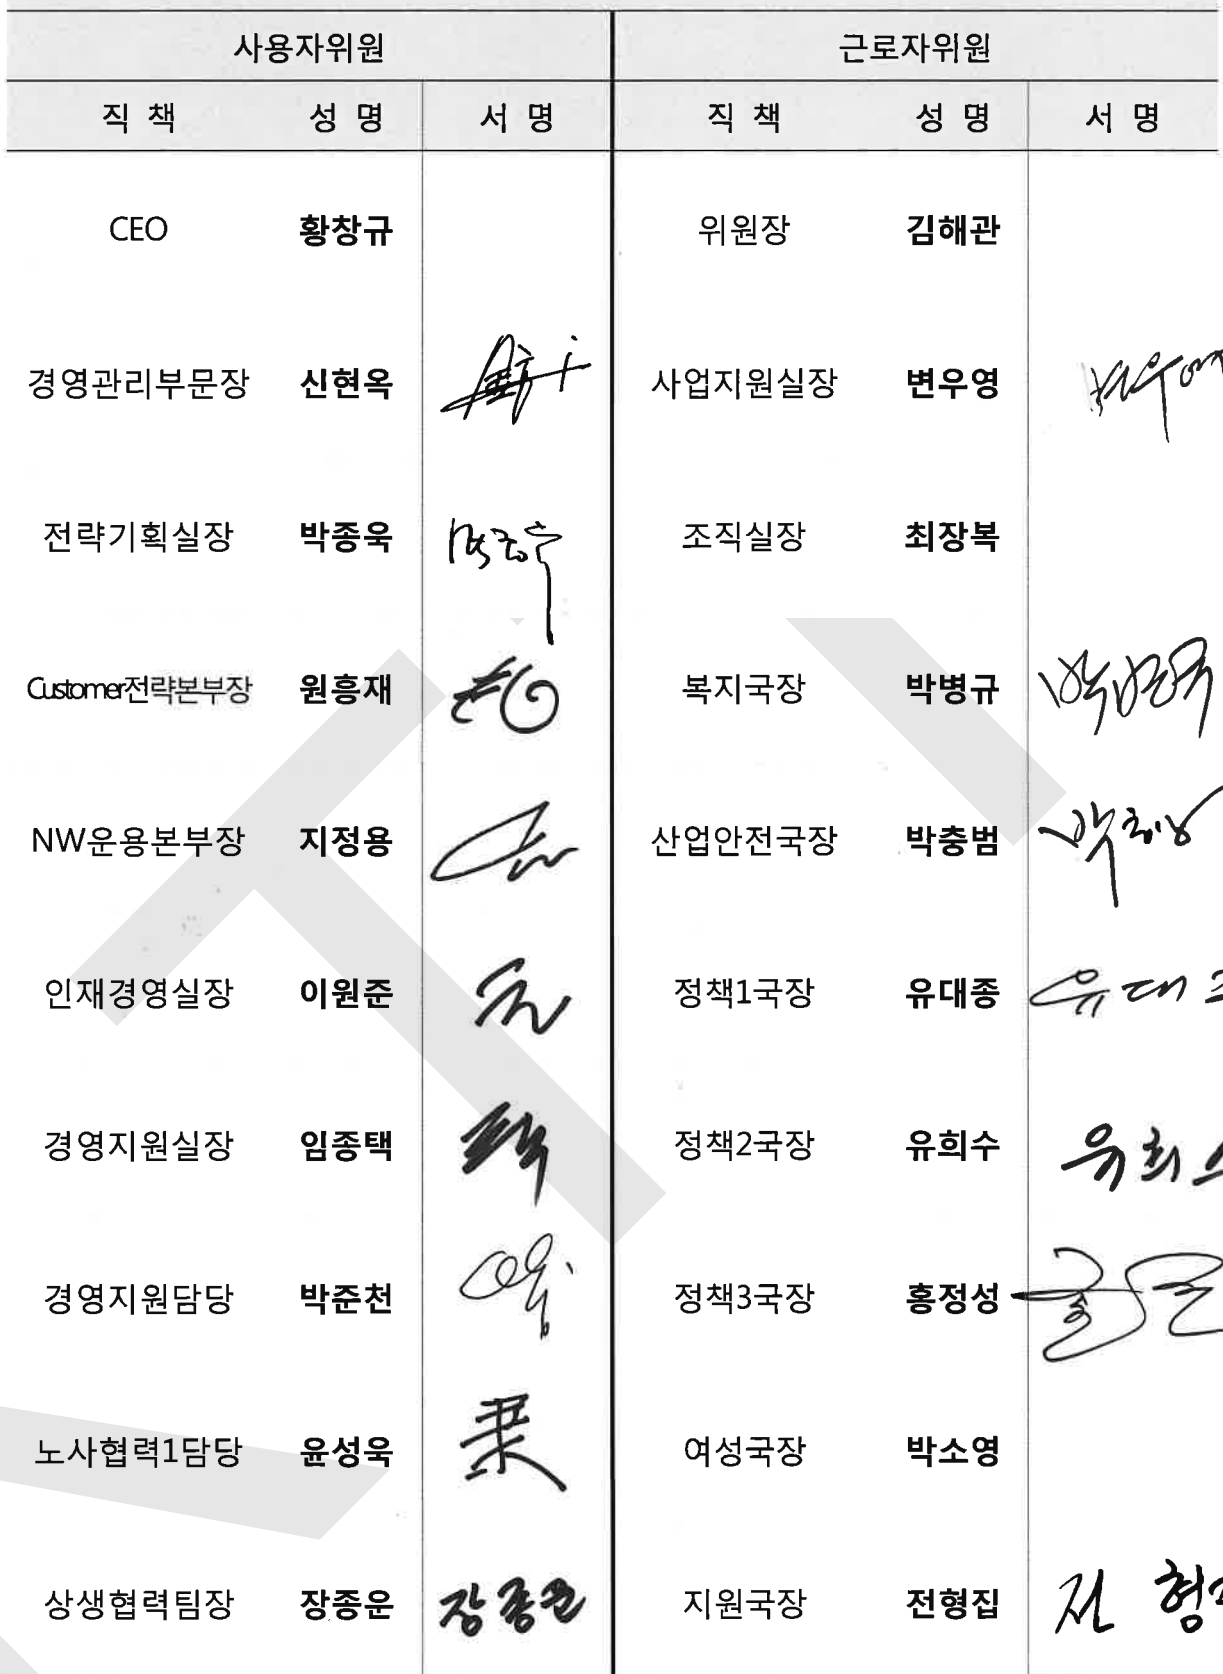 사용자위원 근로자위원
직 책 성 명 서 명 직 책 성 명 서 명
CEO 황창규 위원장 김해관
경영관리부문장 신현옥 사업지원실장 변우영
전략기획실장 박종욱 조직실장 최장복
Customer전략본부장 원흥재 복지국장 박병규
NW운용본부장 지정용 산업안전국장 박충범
인재경영실장 이원준 정책1국장 유대종 유대
경영지원실장 임종택 정책2국장 유희수 유희
경영지원담당 박준천 정책3국장 홍정성
노사협력1담당 윤성욱 여성국장 박소영
상생협력팀장 장종운 장종운 지원국장 전형집 전 형